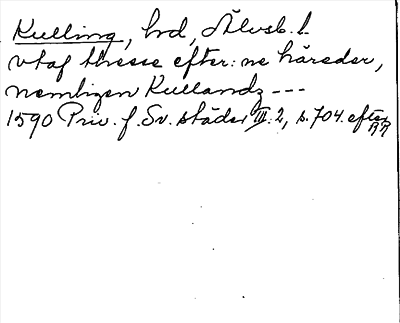 Kulling, hrd, Älvsb. l.
vtaf thesse efter:ne häreder,
nemligen Kullandz ---
1590 Priv. f. Sv. städer III:2, s. 704. efter
RR